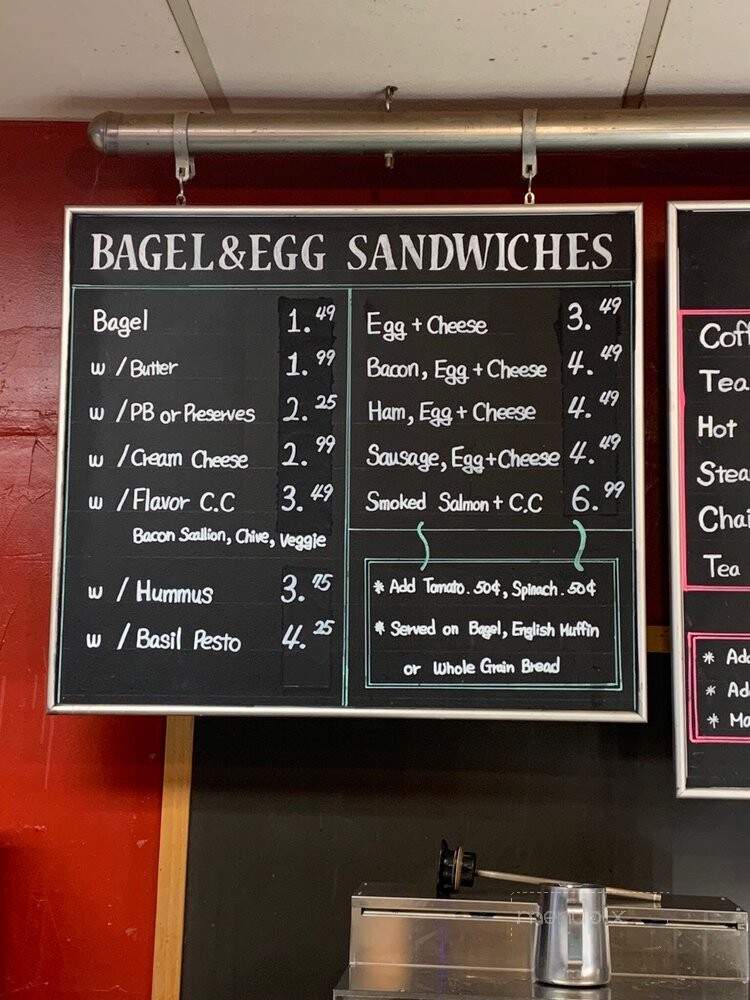 BAGEL&EGG SANDWICHES
Bagel 1.49
w / Butter 1.99
w / PB or Preserves 2.25
w / Cream Cheese 2.99
w / Flavor C.C 3.49
Bacon Scallion, Chive, Veggie
w / Hummus 3.75
w / Basil Pesto 4.25
Egg + Cheese 3.49
Bacon, Egg + Cheese 4.49
Ham, Egg + Cheese 4.49
Sausage, Egg + Cheese 4.49
Smoked Salmon + C.C 6.99
* Add Tomato .50¢, Spinach .50¢
* Served on Bagel, English Muffin
or Whole Grain Bread
Coff
Tea
Hot
Stea
Chai
Tea
* Add
* Ad
* Ma
menupix